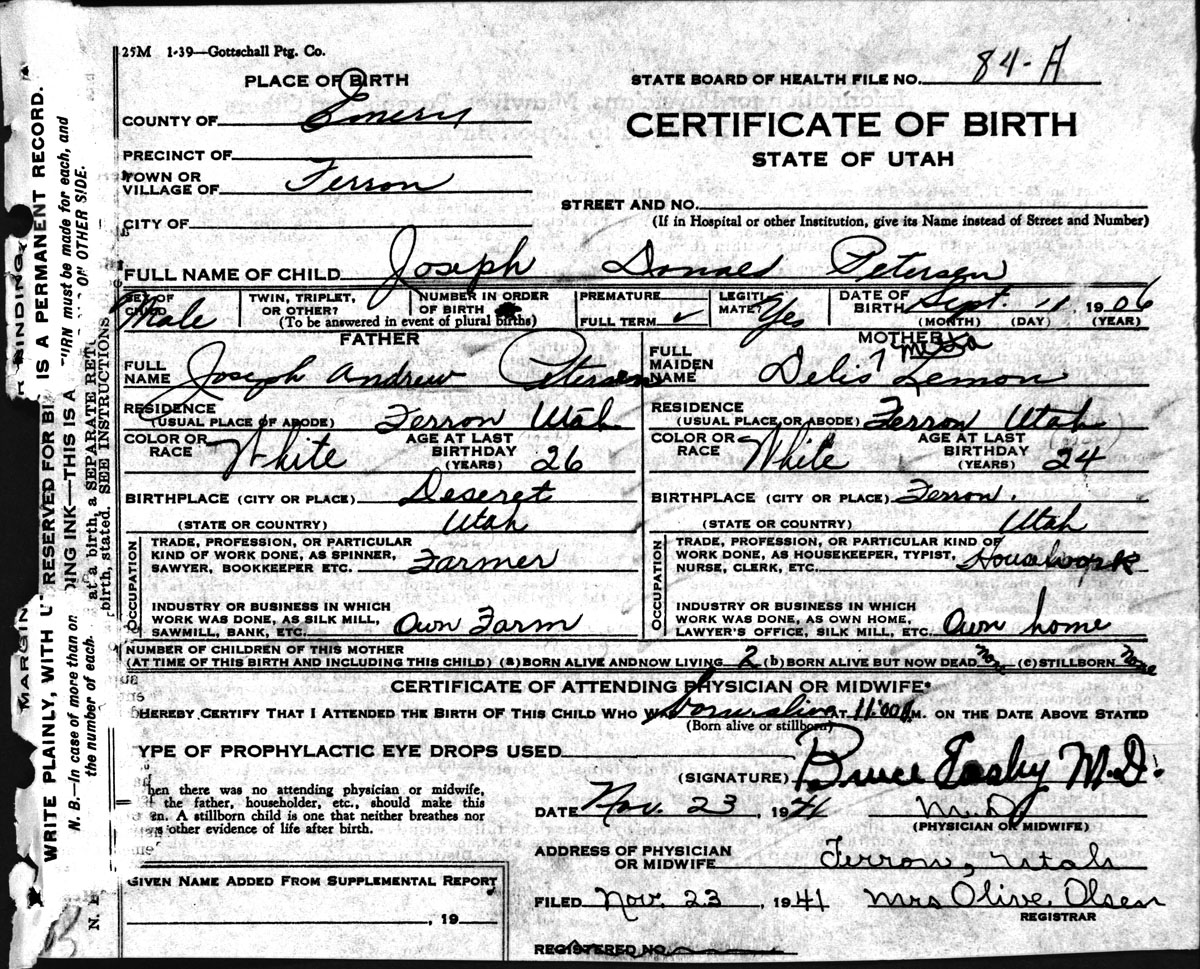 25M 1-39—Gottschall Ptg. Co.
PLACE OF BIRTH
STATE BOARD OF HEALTH FILE NO. 84-A
COUNTY OF Emery
CERTIFICATE OF BIRTH
PRECINCT OF
STATE OF UTAH
TOWN OR
VILLAGE OF Ferron
STREET AND NO.
(If in Hospital or other Institution, give its Name instead of Street and Number)
CITY OF
FULL NAME OF CHILD Joseph Donald Petersen
SEX OF CHILD Male
TWIN, TRIPLET, OR OTHER?
NUMBER IN ORDER OF BIRTH
(To be answered in event of plural births)
PREMATURE
FULL TERM ✓
LEGITIMATE? Yes
DATE OF BIRTH Sept. 11, 1906
(MONTH) (DAY) (YEAR)
FATHER
FULL NAME Joseph Andrew Petersen
RESIDENCE
(USUAL PLACE OF ABODE) Ferron Utah
COLOR OR RACE White
AGE AT LAST BIRTHDAY (YEARS) 26
BIRTHPLACE (CITY OR PLACE) Deseret
(STATE OR COUNTRY) Utah
OCCUPATION
TRADE, PROFESSION, OR PARTICULAR
KIND OF WORK DONE, AS SPINNER,
SAWYER, BOOKKEEPER ETC. Farmer
INDUSTRY OR BUSINESS IN WHICH
WORK WAS DONE, AS SILK MILL,
SAWMILL, BANK, ETC. Own Farm
MOTHER
FULL MAIDEN NAME Delis Lemon
RESIDENCE
(USUAL PLACE OR ABODE) Ferron Utah
COLOR OR RACE White
AGE AT LAST BIRTHDAY (YEARS) 24
BIRTHPLACE (CITY OR PLACE) Ferron.
(STATE OR COUNTRY) Utah
OCCUPATION
TRADE, PROFESSION, OR PARTICULAR KIND OF
WORK DONE, AS HOUSEKEEPER, TYPIST,
NURSE, CLERK, ETC. Housework
INDUSTRY OR BUSINESS IN WHICH
WORK WAS DONE, AS OWN HOME,
LAWYER'S OFFICE, SILK MILL, ETC. Own home
NUMBER OF CHILDREN OF THIS MOTHER
(AT TIME OF THIS BIRTH AND INCLUDING THIS CHILD) (a) BORN ALIVE AND NOW LIVING 2 (b) BORN ALIVE BUT NOW DEAD None (c) STILLBORN None
CERTIFICATE OF ATTENDING PHYSICIAN OR MIDWIFE*
HEREBY CERTIFY THAT I ATTENDED THE BIRTH OF THIS CHILD WHO WAS born alive AT 11:00 M. ON THE DATE ABOVE STATED
(Born alive or stillborn)
TYPE OF PROPHYLACTIC EYE DROPS USED
(SIGNATURE) Bruce Easby M.D.
hen there was no attending physician or midwife,
the father, householder, etc., should make this
en. A stillborn child is one that neither breathes nor
other evidence of life after birth.
DATE Nov. 23, 1941 M.D.
(PHYSICIAN OR MIDWIFE)
ADDRESS OF PHYSICIAN
OR MIDWIFE Ferron, Utah
GIVEN NAME ADDED FROM SUPPLEMENTAL REPORT
, 19
FILED Nov. 23, 1941 Mrs Olive Olsen
REGISTRAR
REGISTERED NO.
MARGIN RESERVED FOR BINDING
WRITE PLAINLY, WITH U DING INK—THIS IS A PERMANENT RECORD.
N. B.—In case of more than on at a birth, a SEPARATE RETURN must be made for each, and
the number of each birth, stated. SEE INSTRUCTIONS ON OTHER SIDE.